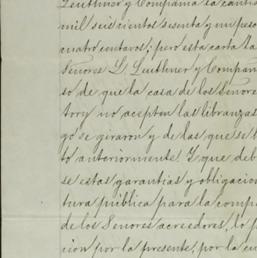 Leuthner y Compañia la canti
mil seis cientos sesenta y un peso
cuatro centavos; pero esta carta la
Señores L. Leuthner y Compañi
so de que la casa de los Señore
tory no acepten las libranzas
go se giraron y de las que se h
to anteriormente. Y que deb
se estas garantias y obligacion
tura pública para la comp
de los Señores acreedores, lo p
cion por la presente, por la cu